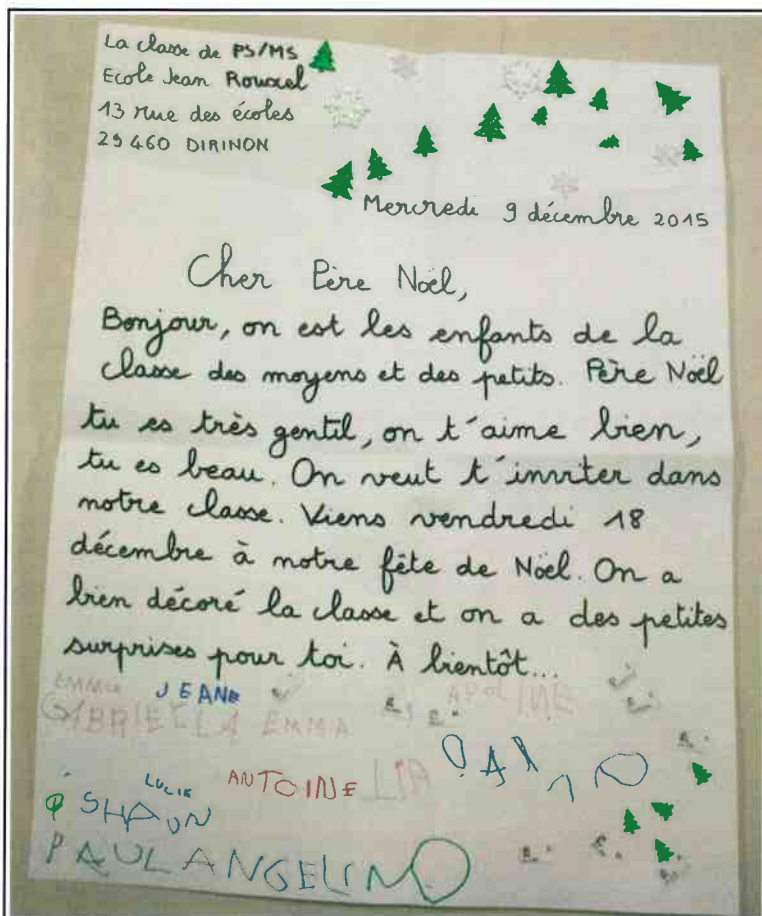 La classe de PS/MS
Ecole Jean Rouxel
13 rue des écoles
29460 DIRINON
Mercredi 9 décembre 2015
Cher Père Noël,
Bonjour, on est les enfants de la
classe des moyens et des petits. Père Noël
tu es très gentil, on t'aime bien,
tu es beau. On veut t'inviter dans
notre classe. Viens vendredi 18
décembre à notre fête de Noël. On a
bien décoré la classe et on a des petites
surprises pour toi. À bientôt...
EMMA JEANE APOLINE
GABRIELLA EMMA
LULIE ANTOINE LIA
SHAUN
PAUL ANGELINO